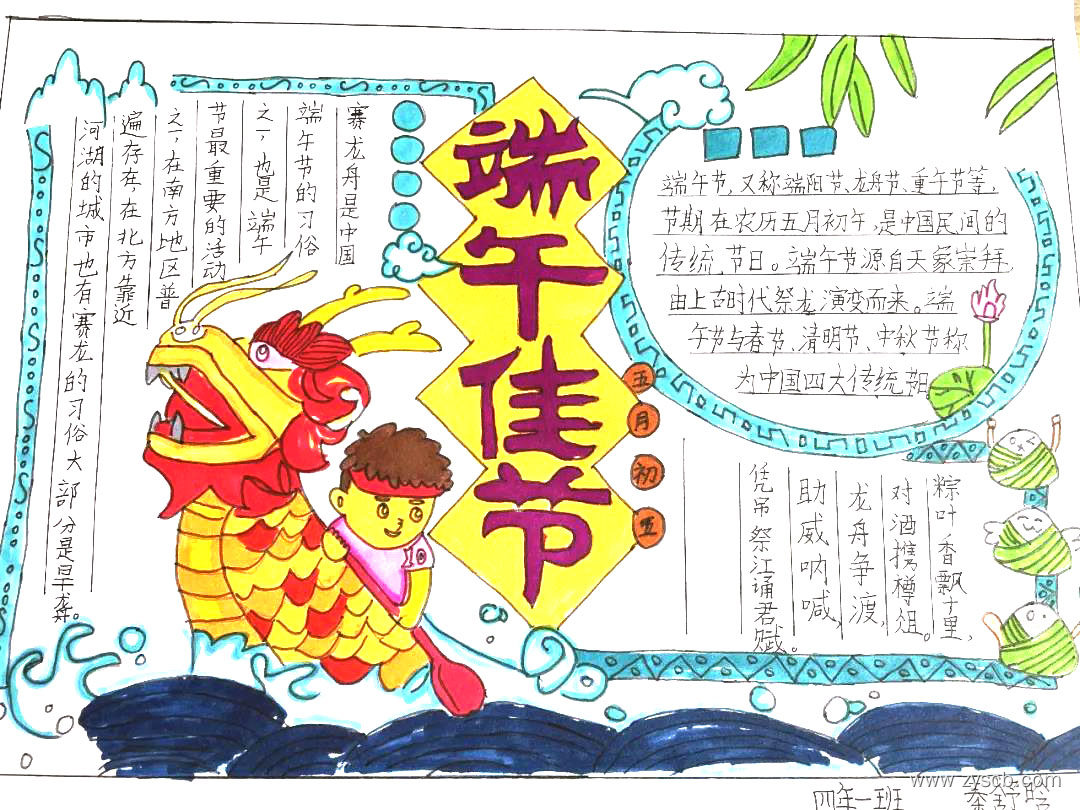 端午佳节
五月初五
赛龙舟是中国
端午节的习俗
之一,也是端午
节最重要的活动
之一,在南方地区普
遍存在,在北方靠近
河湖的城市也有赛龙的习俗大部分是旱龙舟。
端午节,又称端阳节、龙舟节、重午节等,
节期在农历五月初午,是中国民间的
传统节日。端午节源自天家崇拜,
由上古时代祭龙演变而来。端
午节与春节、清明节、中秋节称
为中国四大传统节日
粽叶香飘十里,
对酒携樽俎。
龙舟争渡,
助威呐喊,
凭吊祭江诵君赋。
10
四年一班
www.zyscb.com